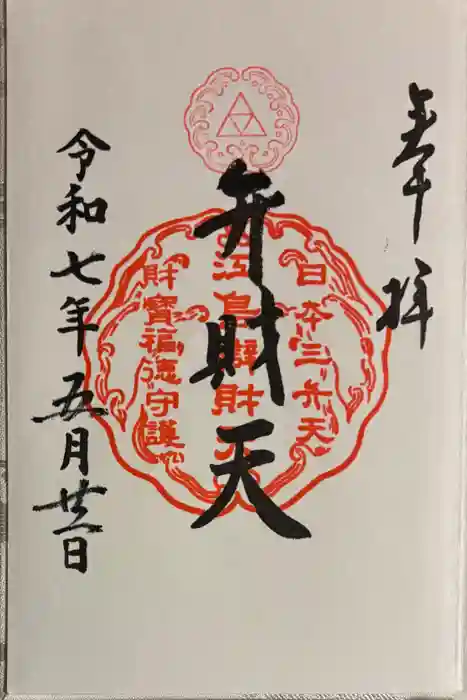 奉拝
弁財天
日本三弁天
江島辨財天
財寶福徳守護
令和七年五月廿日